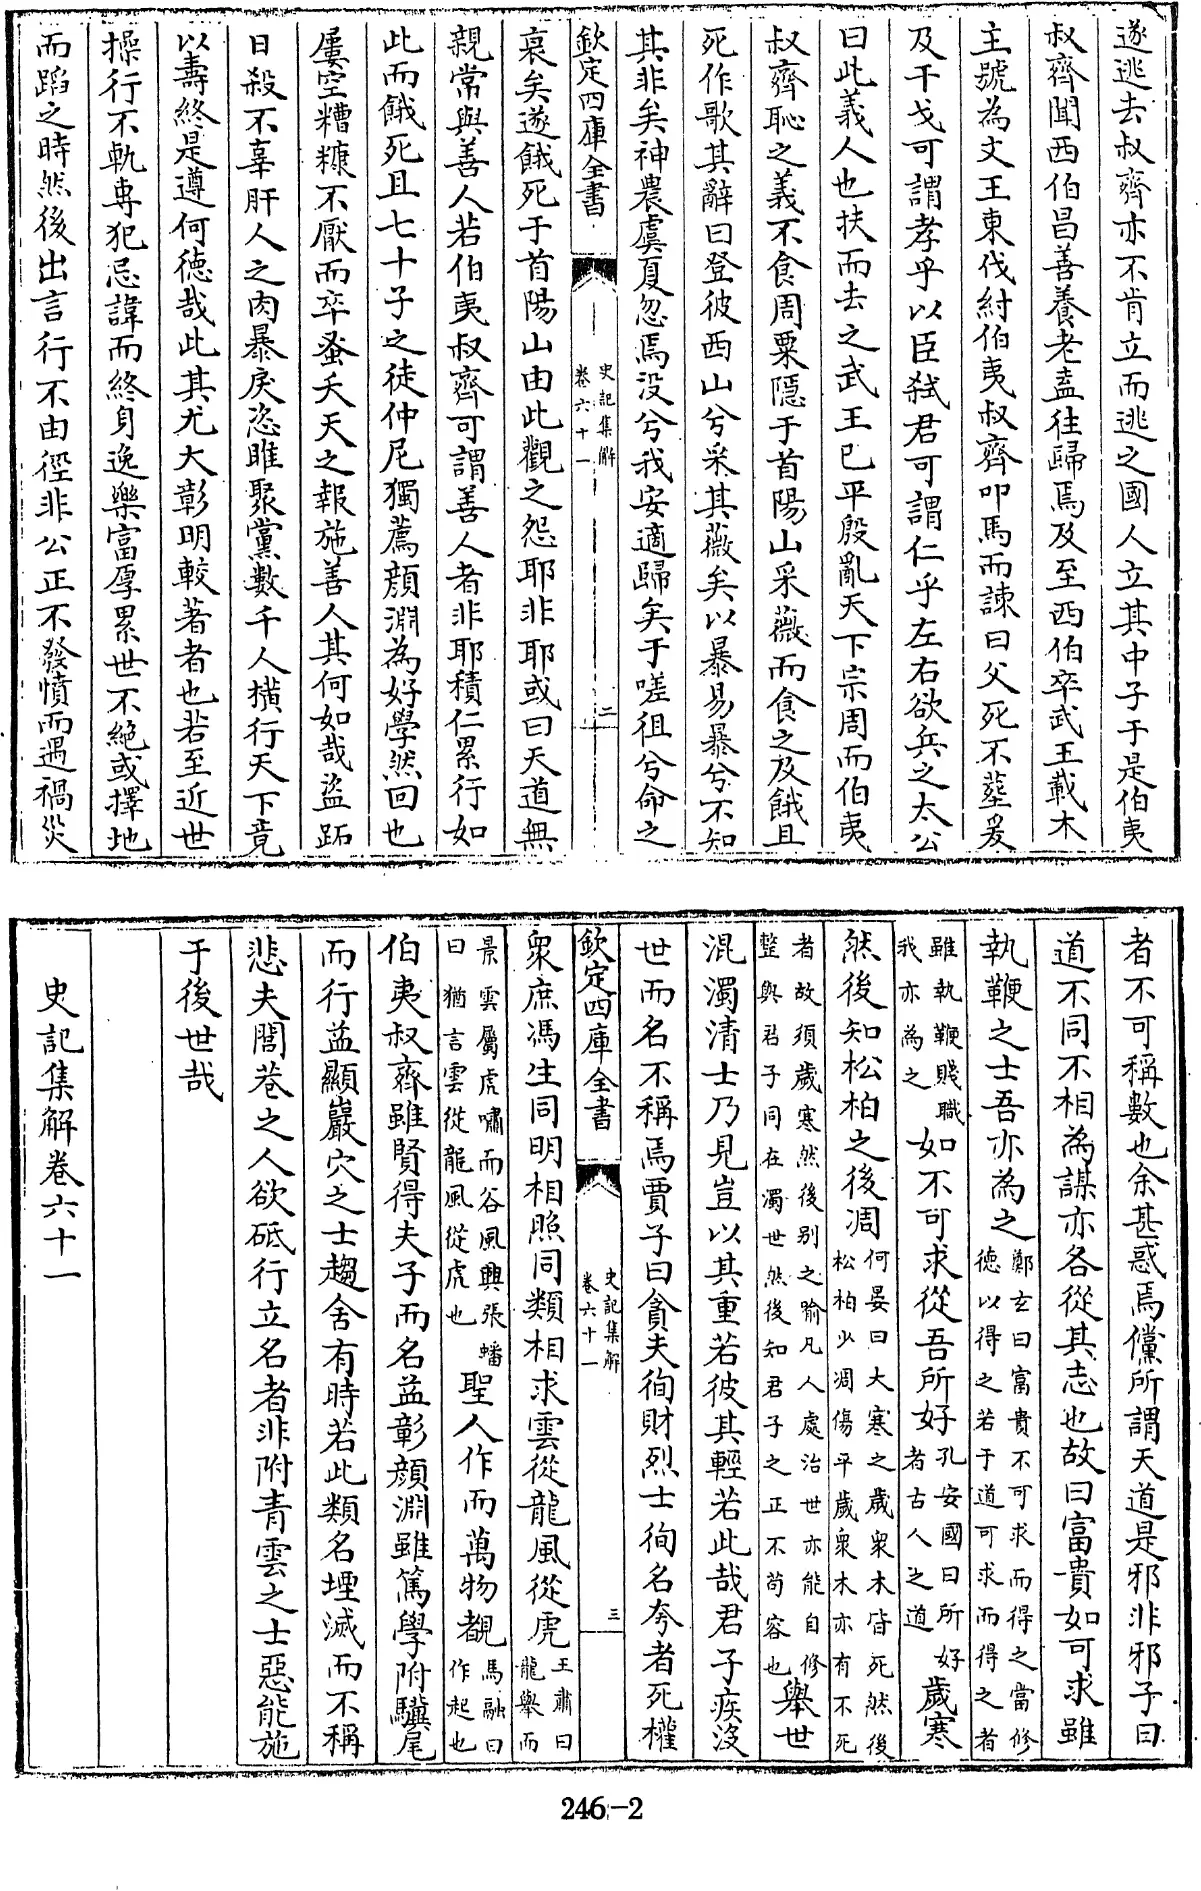 遂逃去叔齊亦不肯立而逃之國人立其中子于是伯夷
叔齊聞西伯昌善養老盍往歸焉及至西伯卒武王載木
主號為文王東伐紂伯夷叔齊叩馬而諫曰父死不塟爰
及干戈可謂孝乎以臣弑君可謂仁乎左右欲兵之太公
曰此義人也扶而去之武王已平殷亂天下宗周而伯夷
叔齊恥之義不食周粟隱于首陽山采薇而食之及餓且
死作歌其辭曰登彼西山兮采其薇矣以暴易暴兮不知
其非矣神農虞夏忽焉沒兮我安適歸矣于嗟徂兮命之
欽定四庫全書 史記集解 卷六十一 二
衰矣遂餓死于首陽山由此觀之怨耶非耶或曰天道無
親常與善人若伯夷叔齊可謂善人者非耶積仁累行如
此而餓死且七十子之徒仲尼獨薦顔淵為好學然回也
屢空糟糠不厭而卒蚤夭天之報施善人其何如哉盜跖
日殺不辜肝人之肉暴戾恣睢聚黨數千人橫行天下竟
以壽終是遵何德哉此其尤大彰明較著者也若至近世
操行不軌専犯忌諱而終身逸樂富厚累世不絕或擇地
而蹈之時然後出言行不由徑非公正不發憤而遇禍災
者不可稱數也余甚惑焉儻所謂天道是邪非邪子曰
道不同不相為謀亦各從其志也故曰富貴如可求雖
執鞭之士吾亦為之鄭玄曰富貴不可求而得之當修德以得之若于道可求而得之者
雖執鞭賤職我亦為之如不可求從吾所好孔安國曰所好者古人之道歲寒
然後知松柏之後凋何晏曰大寒之歲衆木皆死然後松柏少凋傷平歲衆木亦有不死
者故須歲寒然後别之喻凡人處治世亦能自修整與君子同在濁世然後知君子之正不苟容也舉世
混濁清士乃見豈以其重若彼其輕若此哉君子疾沒
世而名不稱焉賈子曰貪夫徇財烈士徇名夸者死權
欽定四庫全書 史記集解 卷六十一 三
衆庶馮生同明相照同類相求雲從龍風從虎王肅曰龍舉而
景雲屬虎嘯而谷風興張蟠曰猶言雲從龍風從虎也聖人作而萬物覩馬融曰作起也
伯夷叔齊雖賢得夫子而名益彰顔淵雖篤學附驥尾
而行益顯巖穴之士趨舍有時若此類名堙滅而不稱
悲夫閭巷之人欲砥行立名者非附青雲之士惡能施
于後世哉
史記集解卷六十一
246-2